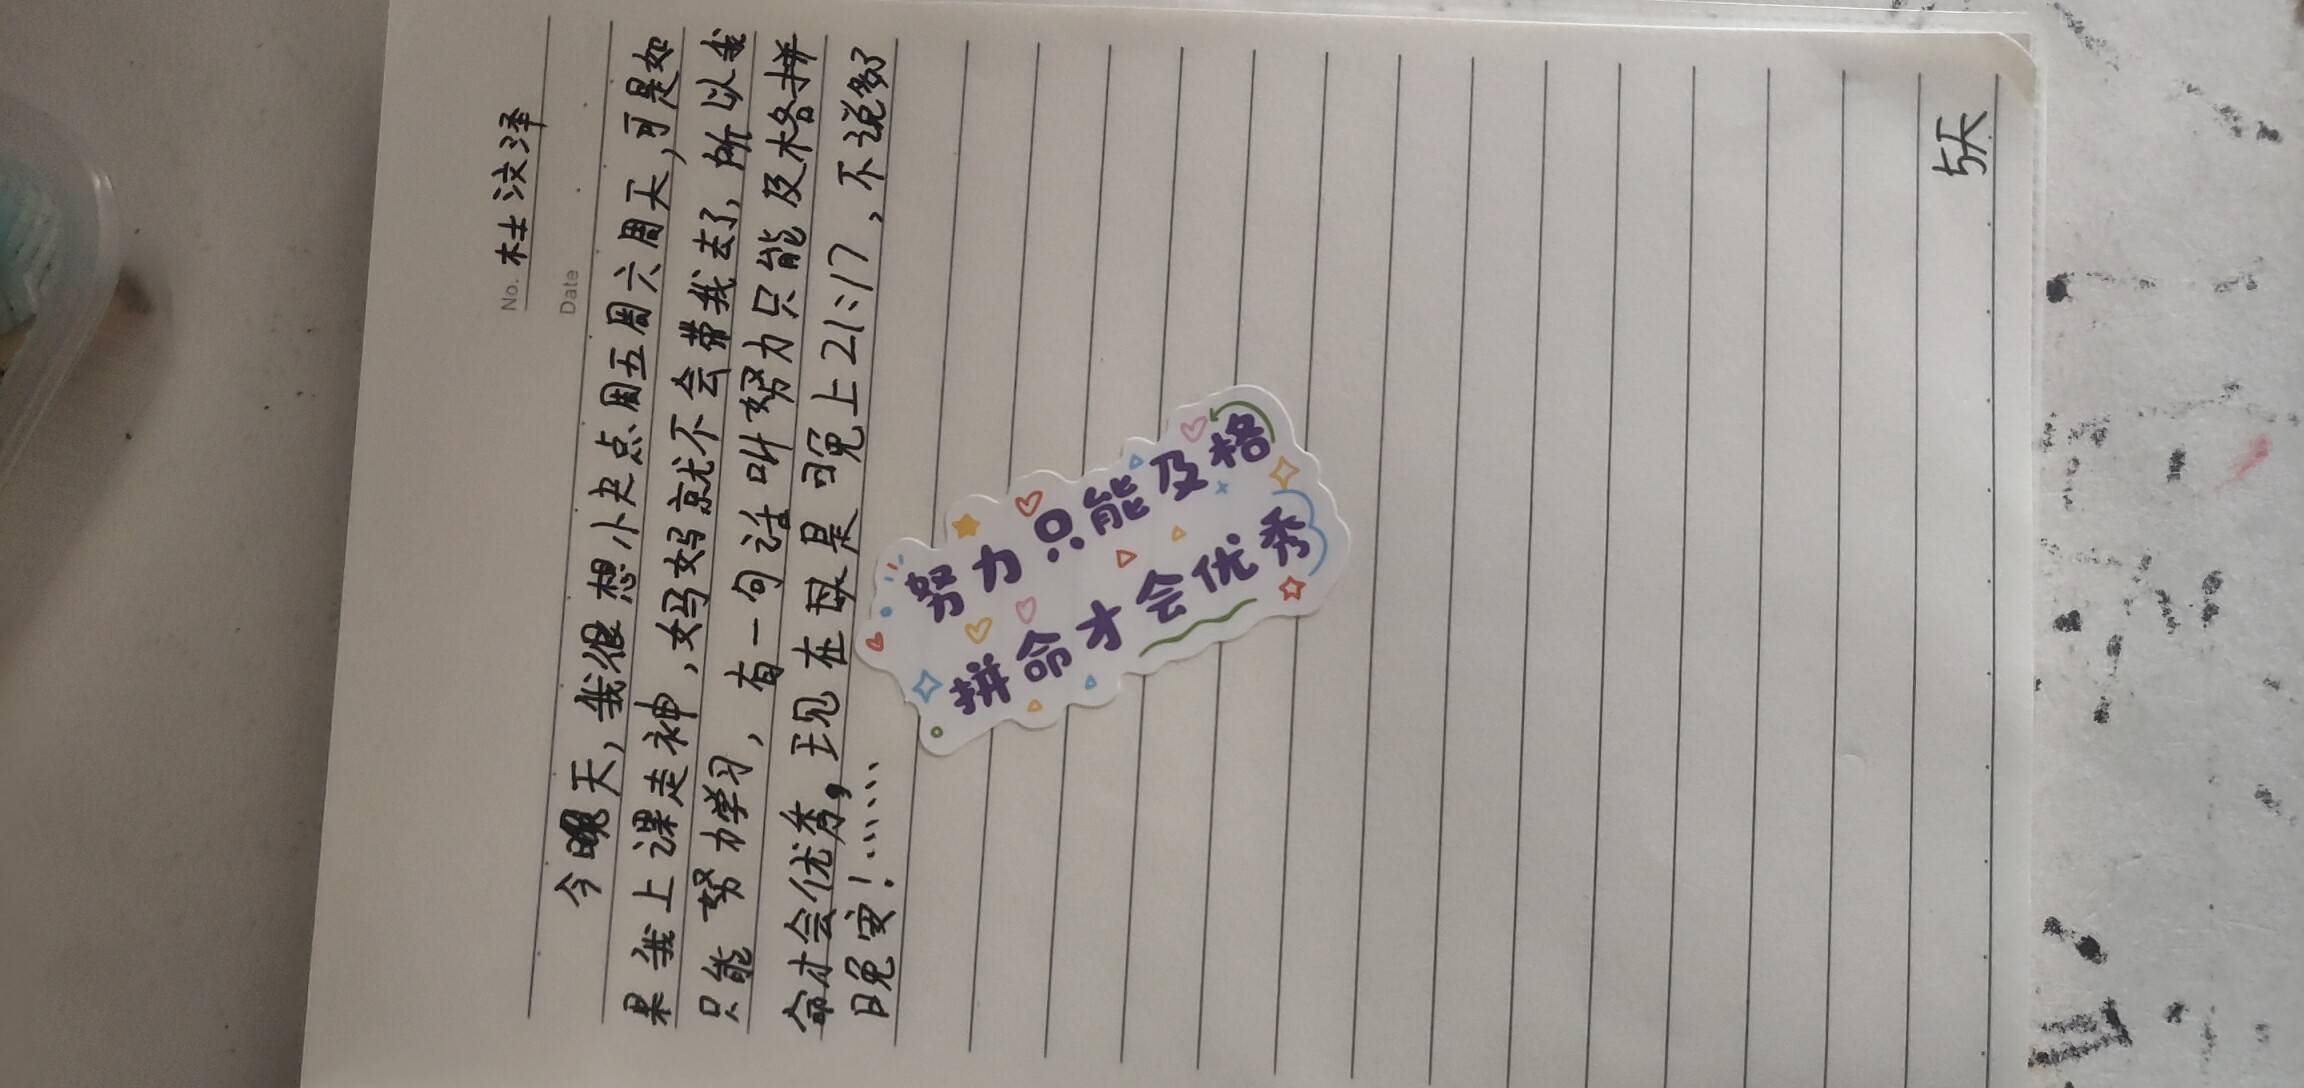 No. 杜汶泽
Date
今天，我很想小夬点、周五周六周天，可是如
果我上课走神，妈妈就不会带我去了，所以我
只能努力学习，有一句话叫努力只能及格拼
命才会优秀，现在是晚上21:17，不说多了
晚安！……
努力只能及格
拼命才会优秀
5天